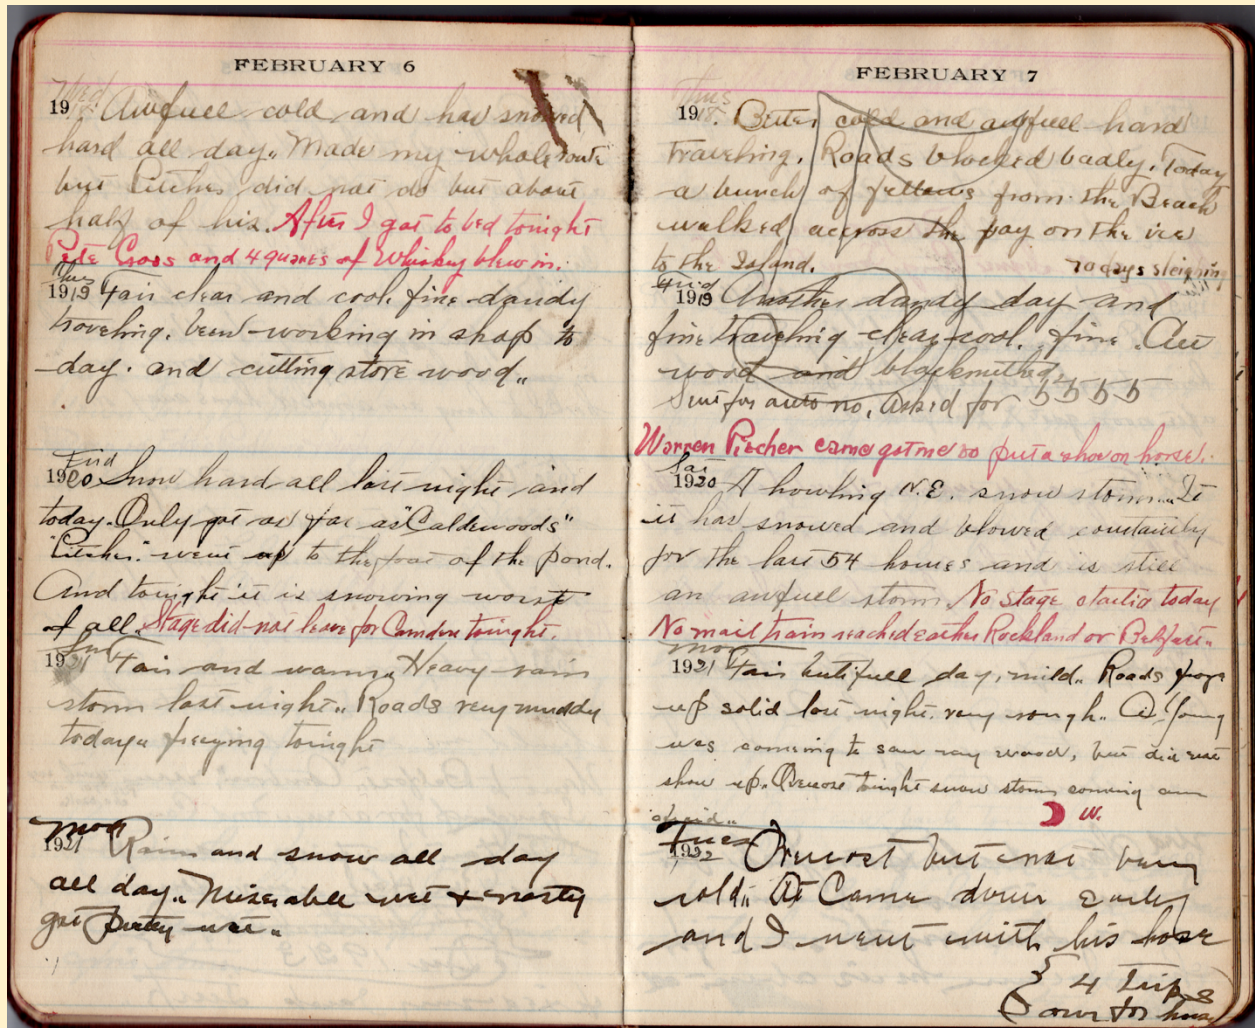 FEBRUARY 6
Wed.
19 . Awfull cold and has snowed
hard all day. Made my whole route
but Pitcher did not do but about
half of his. After I got to bed tonight
Pete Cross and 4 quarts of Whiskey blew in.
Thus
1919 Fair clear and cool. fine dandy
traveling. been working in shop to
day. and cutting stove wood.
Frid
1920 Snow hard all last night and
today. Only got as far as "Calderwoods"
"Pitcher" went up to the foot of the pond.
And tonight it is snowing worst
of all. Stage did not leave for Camden tonight.
Sun
1921 Fair and warm. Heavy rain
storm last night. Roads very muddy
today. freezing tonight
Mon
1921 Rain and snow all day
all day. Miserable wet + nasty
got pretty wet.
FEBRUARY 7
Thus
1918. Bitter cold and awfull hard
Traveling. Roads blocked badly. Today
a bunch of fellows from the Beach
walked accross the bay on the ice
to the Island.
70 days sleighing
Frid
1919 Another dandy day and
fine traveling clear cool. fine.
wood and blacksmithed
Sent for auto no. asked for 5555
Warren Pitcher came got me to put a shoe on horse.
Sat
1920 A howling N.E. snow storm. It
it has snowed and blowed constantly
for the last 54 houres and is still
an awfull storm. No stage today
No mail train reached eather Rockland or Belfast.
Mon
1921 Fair butifull day, mild. Roads froze
up solid last night. very rough. Young
was comeing to saw my wood, but did not
show up. tonight snow storm comeing am
afraid.
W.
Tues
1922 but not very
cold. Came down early
and I went with his hose
4 Trips